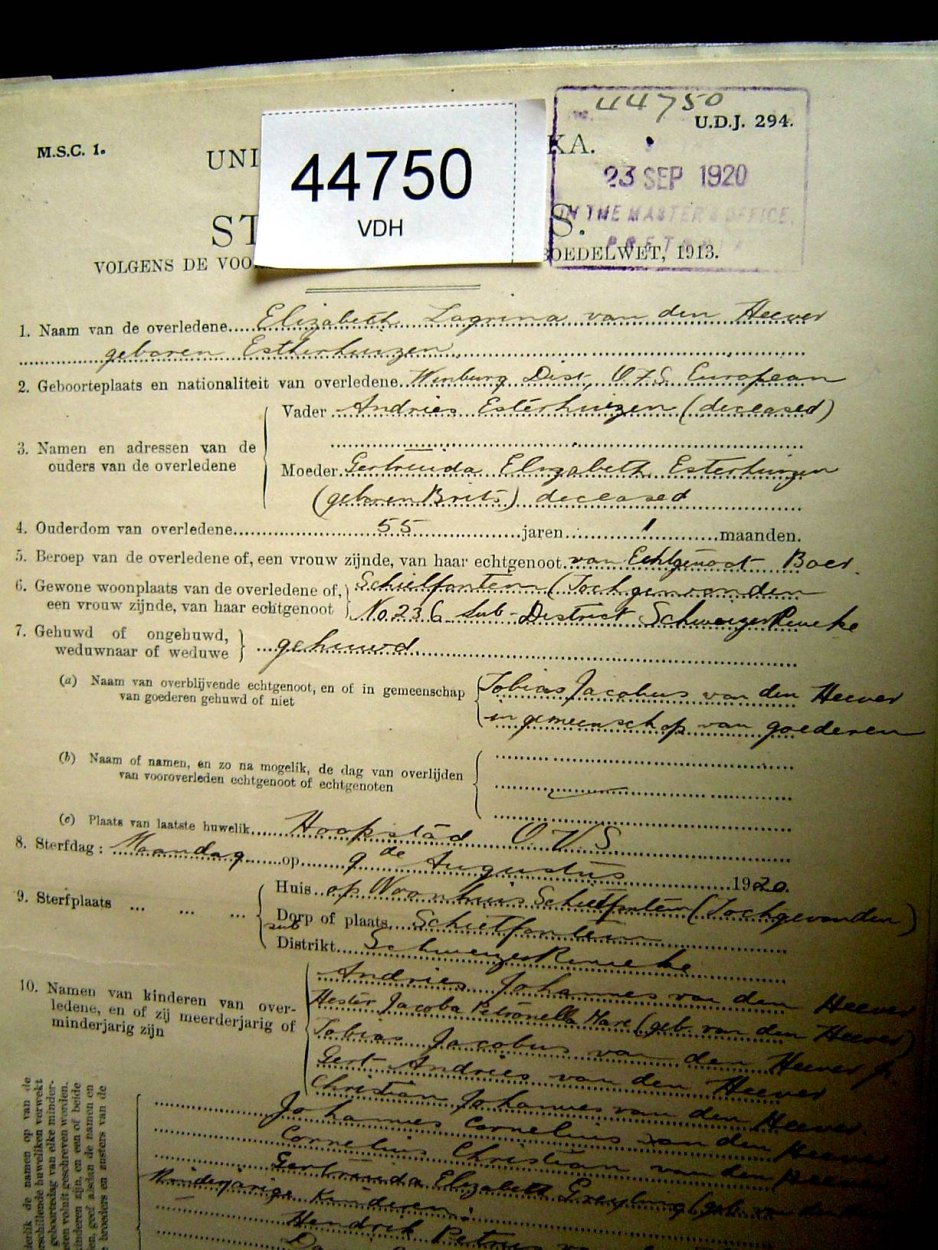 44750
M.S.C. 1.
U.D.J. 294.
UNI KA.
44750
VDH
23 SEP 1920
IN THE MASTER'S OFFICE,
PRETORIA
ST S.
VOLGENS DE VOO BOEDELWET, 1913.
1. Naam van de overledene Elizabeth Lagrina van den Heever
geboren Estherhuizen
2. Geboorteplaats en nationaliteit van overledene Winburg Dist. O.F.S. European
3. Namen en adressen van de ouders van de overledene
Vader Andries Esterhuizen (deceased)
Moeder Gertruida Elizabeth Esterhuizen
(geboren Brits) deceased
4. Ouderdom van overledene 55 jaren 1 maanden.
5. Beroep van de overledene of, een vrouw zijnde, van haar echtgenoot van Echtgenoot Boer.
6. Gewone woonplaats van de overledene of, Schietfontein (Tochgevonden
een vrouw zijnde, van haar echtgenoot No 236 Sub-District Schweizer Reneke
7. Gehuwd of ongehuwd,
weduwnaar of weduwe gehuwd
(a) Naam van overblijvende echtgenoot, en of in gemeenschap Tobias Jacobus van den Heever
van goederen gehuwd of niet in gemeenschap van goederen
(b) Naam of namen, en zo na mogelik, de dag van overlijden
van vooroverleden echtgenoot of echtgenoten
(c) Plaats van laatste huwelik Hoopstad O.V.S.
8. Sterfdag: Maandag op 9de Augustus 1920.
9. Sterfplaats ... ... ...
Huis op Woonhuis Schietfontein (Tochgevonden)
Dorp of plaats Schietfontein
sub
Distrikt Schweizer Reneke
10. Namen van kinderen van over-
ledene, en of zij meerderjarig of
minderjarig zijn
Andries Johannes van den Heever
Hester Jacoba Petronella Mare (geb. van den Heever)
Tobias Jacobus van den Heever Jr
Gert Andries van den Heever
Christian Johannes van den Heever
Johannes Cornelius van den Heever
Cornelius Christian van den Heever
Gertruida Elizabeth Preylung (geb. van den
Minderjarige Kinderen:
Hendrik Petrus